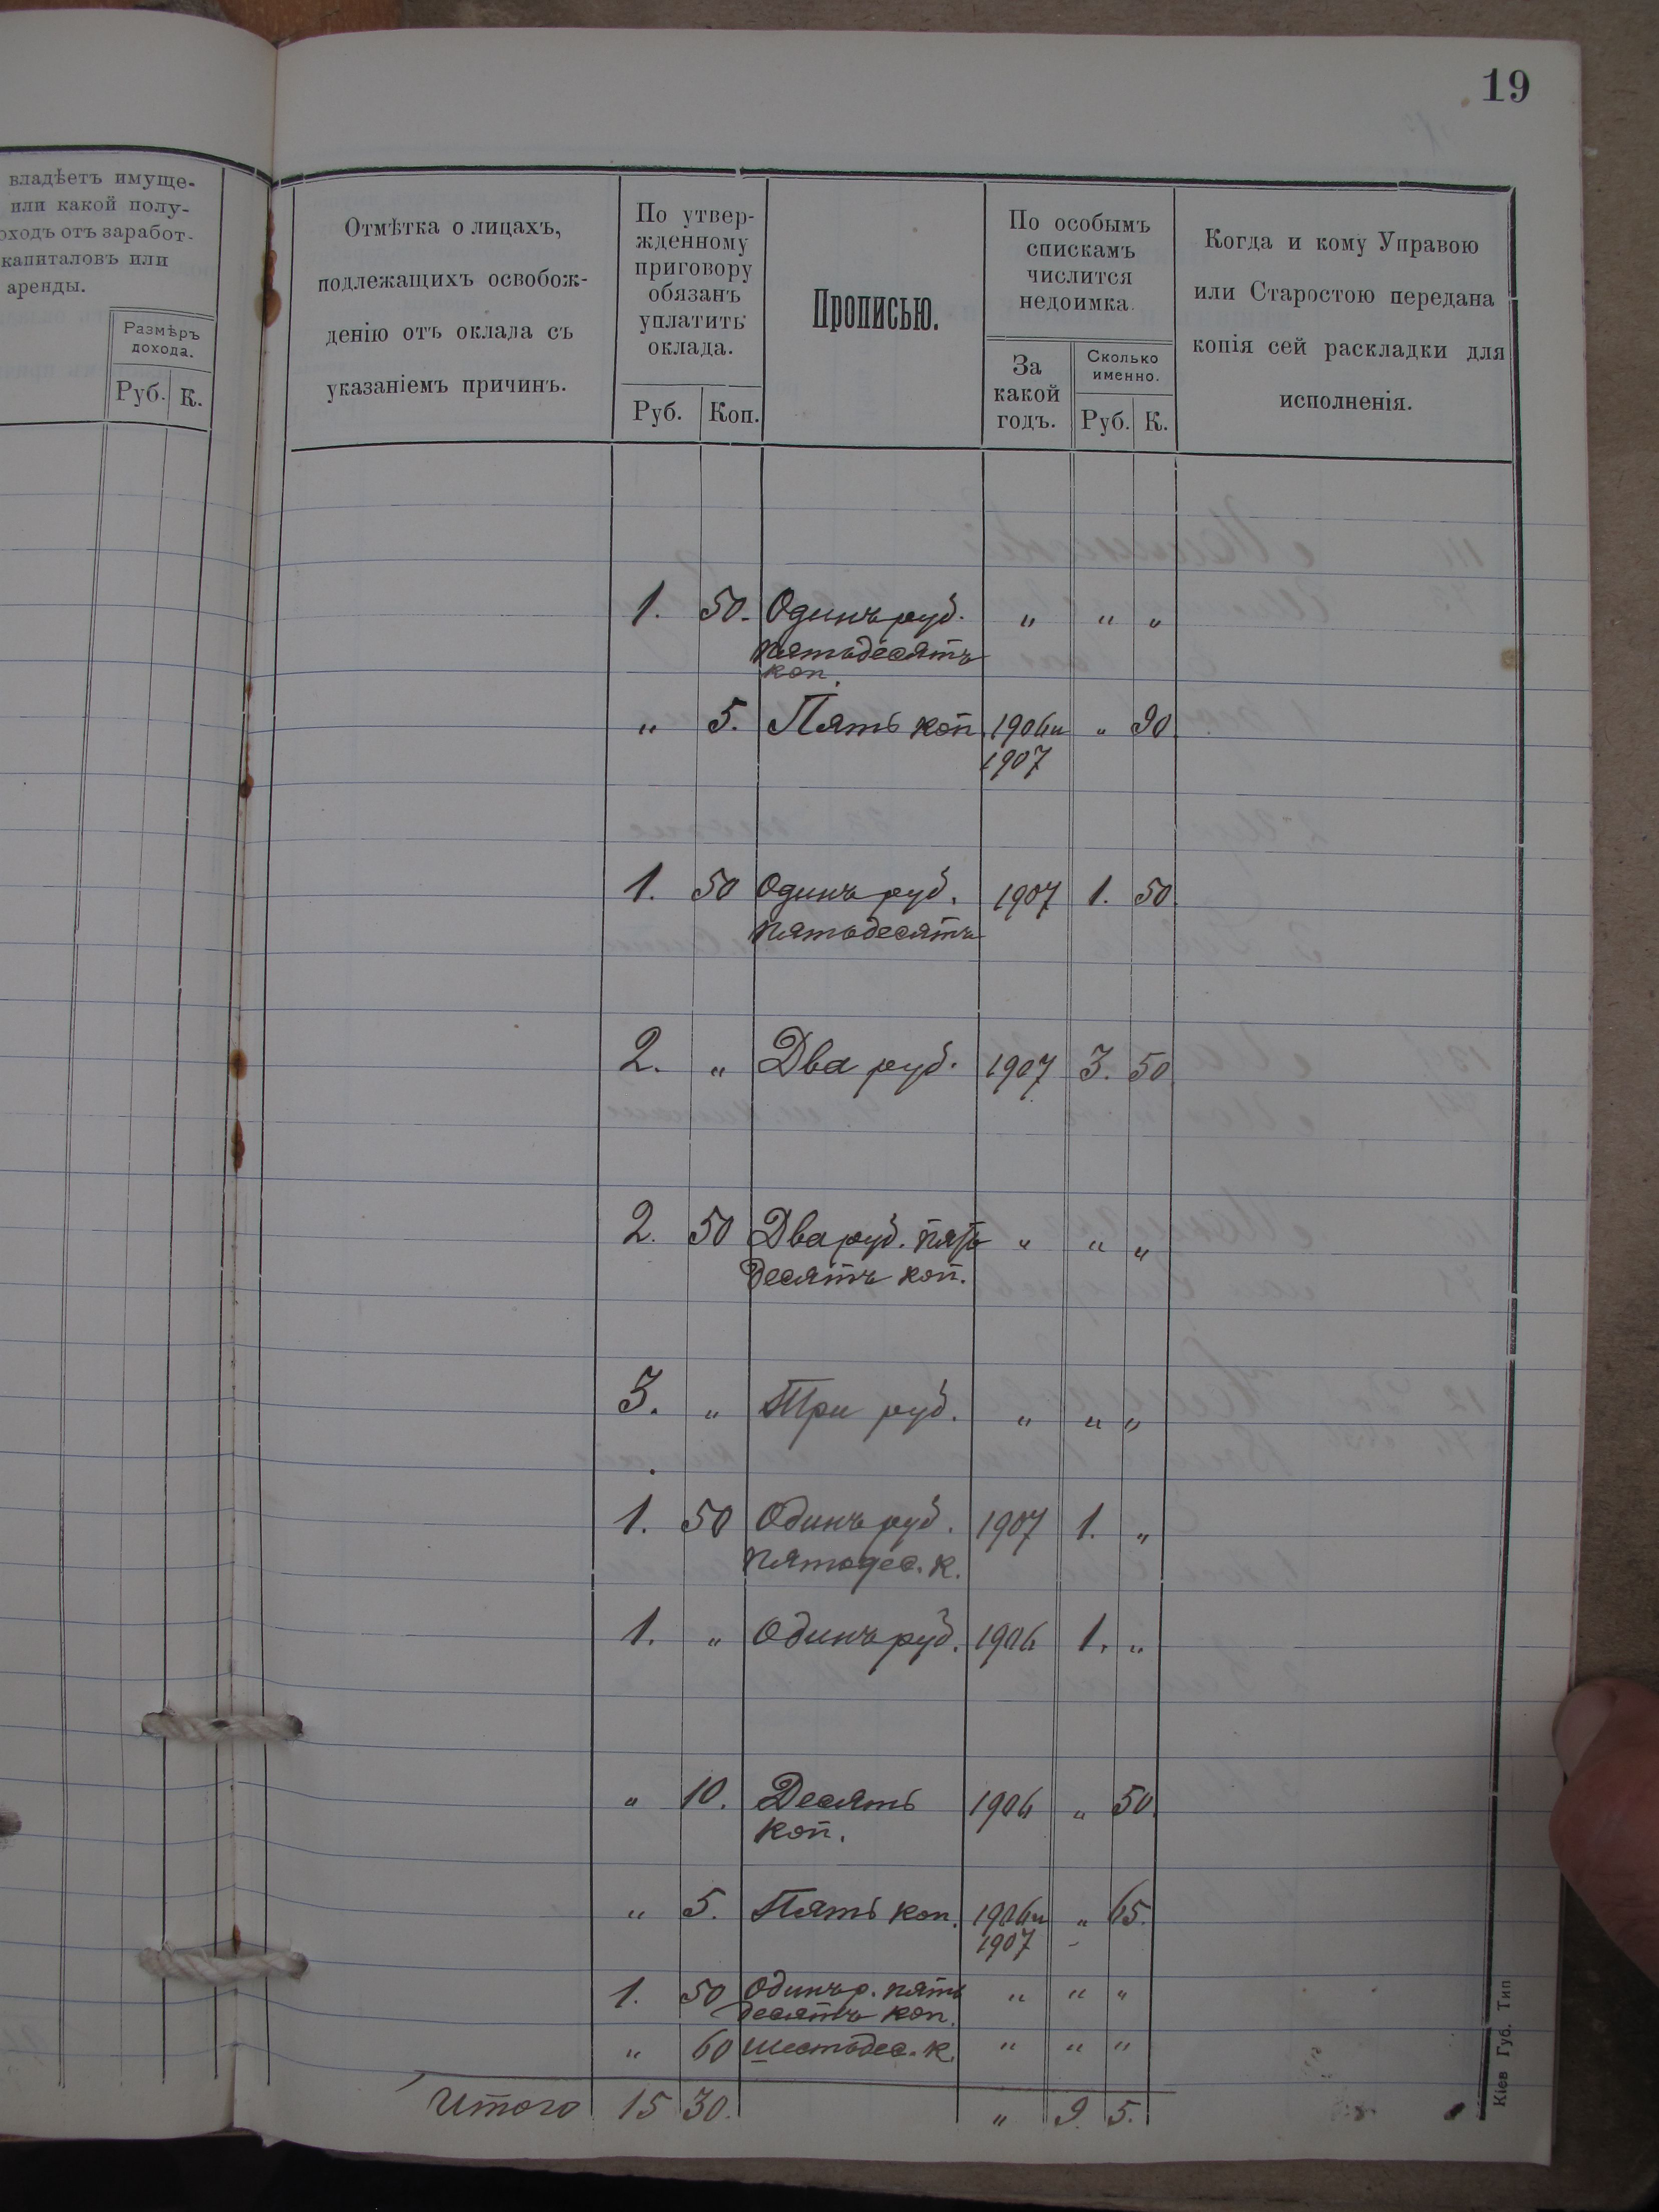 19
владѣетъ имуще-
или какой полу-
оходъ отъ заработ-
капиталовъ или
аренды.
Размѣръ
дохода.
Руб. К.
Отмѣтка о лицахъ,
подлежащихъ освобож-
денію отъ оклада съ
указаніемъ причинъ.
По утвер-
жденному
приговору
обязанъ
уплатить
оклада.
Руб. Коп.
Прописью.
По особымъ
спискамъ
числится
недоимка.
За
какой
годъ.
Сколько
именно.
Руб. К.
Когда и кому Управою
или Старостою передана
копія сей раскладки для
исполненія.
1. 50. Одинъ руб. " " "
пятьдесятъ
коп.
" 5. Пять коп. 1906 и " 90.
1907
1. 50 Одинъ руб. 1907 1. 50.
пятьдесятъ
2. " Два руб. 1907 3. 50
2. 50 Два руб. пять " " "
десятъ коп.
3. " Три руб. " " "
1. 50 Одинъ руб. 1907 1. "
пятьдес. к.
1. " Одинъ руб. 1906 1. "
" 10. Десять 1906 " 50.
коп.
" 5. Пять коп. 1906 и " 65.
1907
1. 50 Одинъ р. пять " " "
десятъ коп.
" 60 шестьдес. к. " " "
Итого 15 30. " 9. 5.
Кіев Губ. Тип